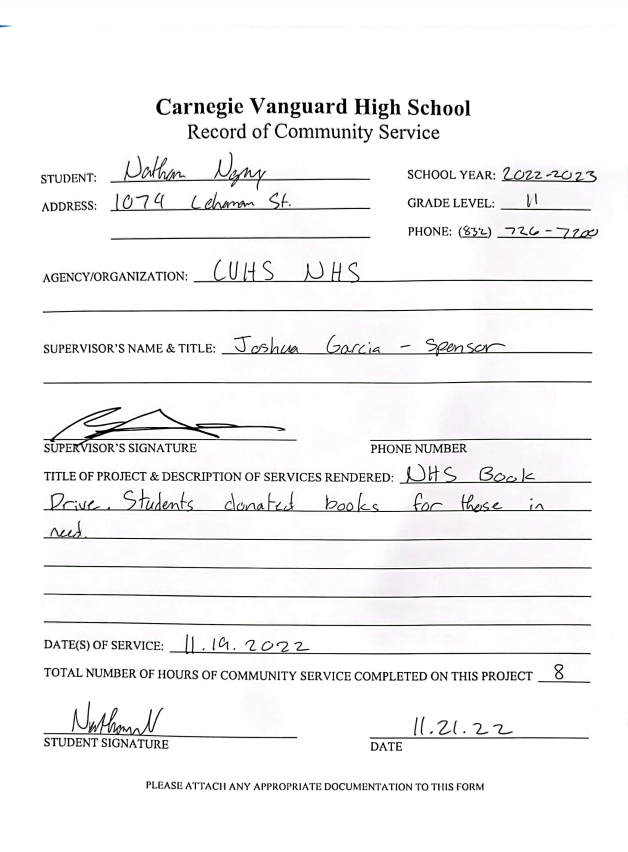 Carnegie Vanguard High School
Record of Community Service
STUDENT: Nathan
SCHOOL YEAR: 2022-2023
ADDRESS: 1074 Lehman St.
GRADE LEVEL: 11
PHONE: (832) 726-7200
AGENCY/ORGANIZATION: CVHS NHS
SUPERVISOR'S NAME & TITLE: Joshua Garcia - Sponsor
SUPERVISOR'S SIGNATURE
PHONE NUMBER
TITLE OF PROJECT & DESCRIPTION OF SERVICES RENDERED: NHS Book
Drive. Students donated books for those in
need.
DATE(S) OF SERVICE: 11.19.2022
TOTAL NUMBER OF HOURS OF COMMUNITY SERVICE COMPLETED ON THIS PROJECT 8
Nathan N
11.21.22
STUDENT SIGNATURE
DATE
PLEASE ATTACH ANY APPROPRIATE DOCUMENTATION TO THIS FORM